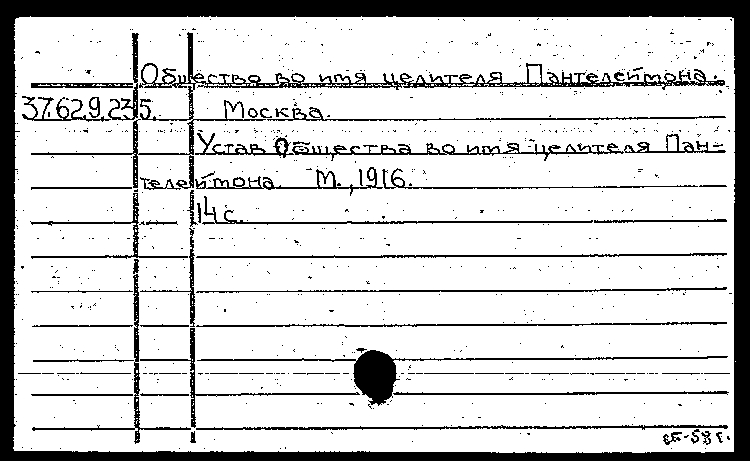 Общество во имя целителя Пантелеймона.
37.62.9.235. Москва.
Устав Общества во имя целителя Пан-
телеймона. М., 1916.
14 с.